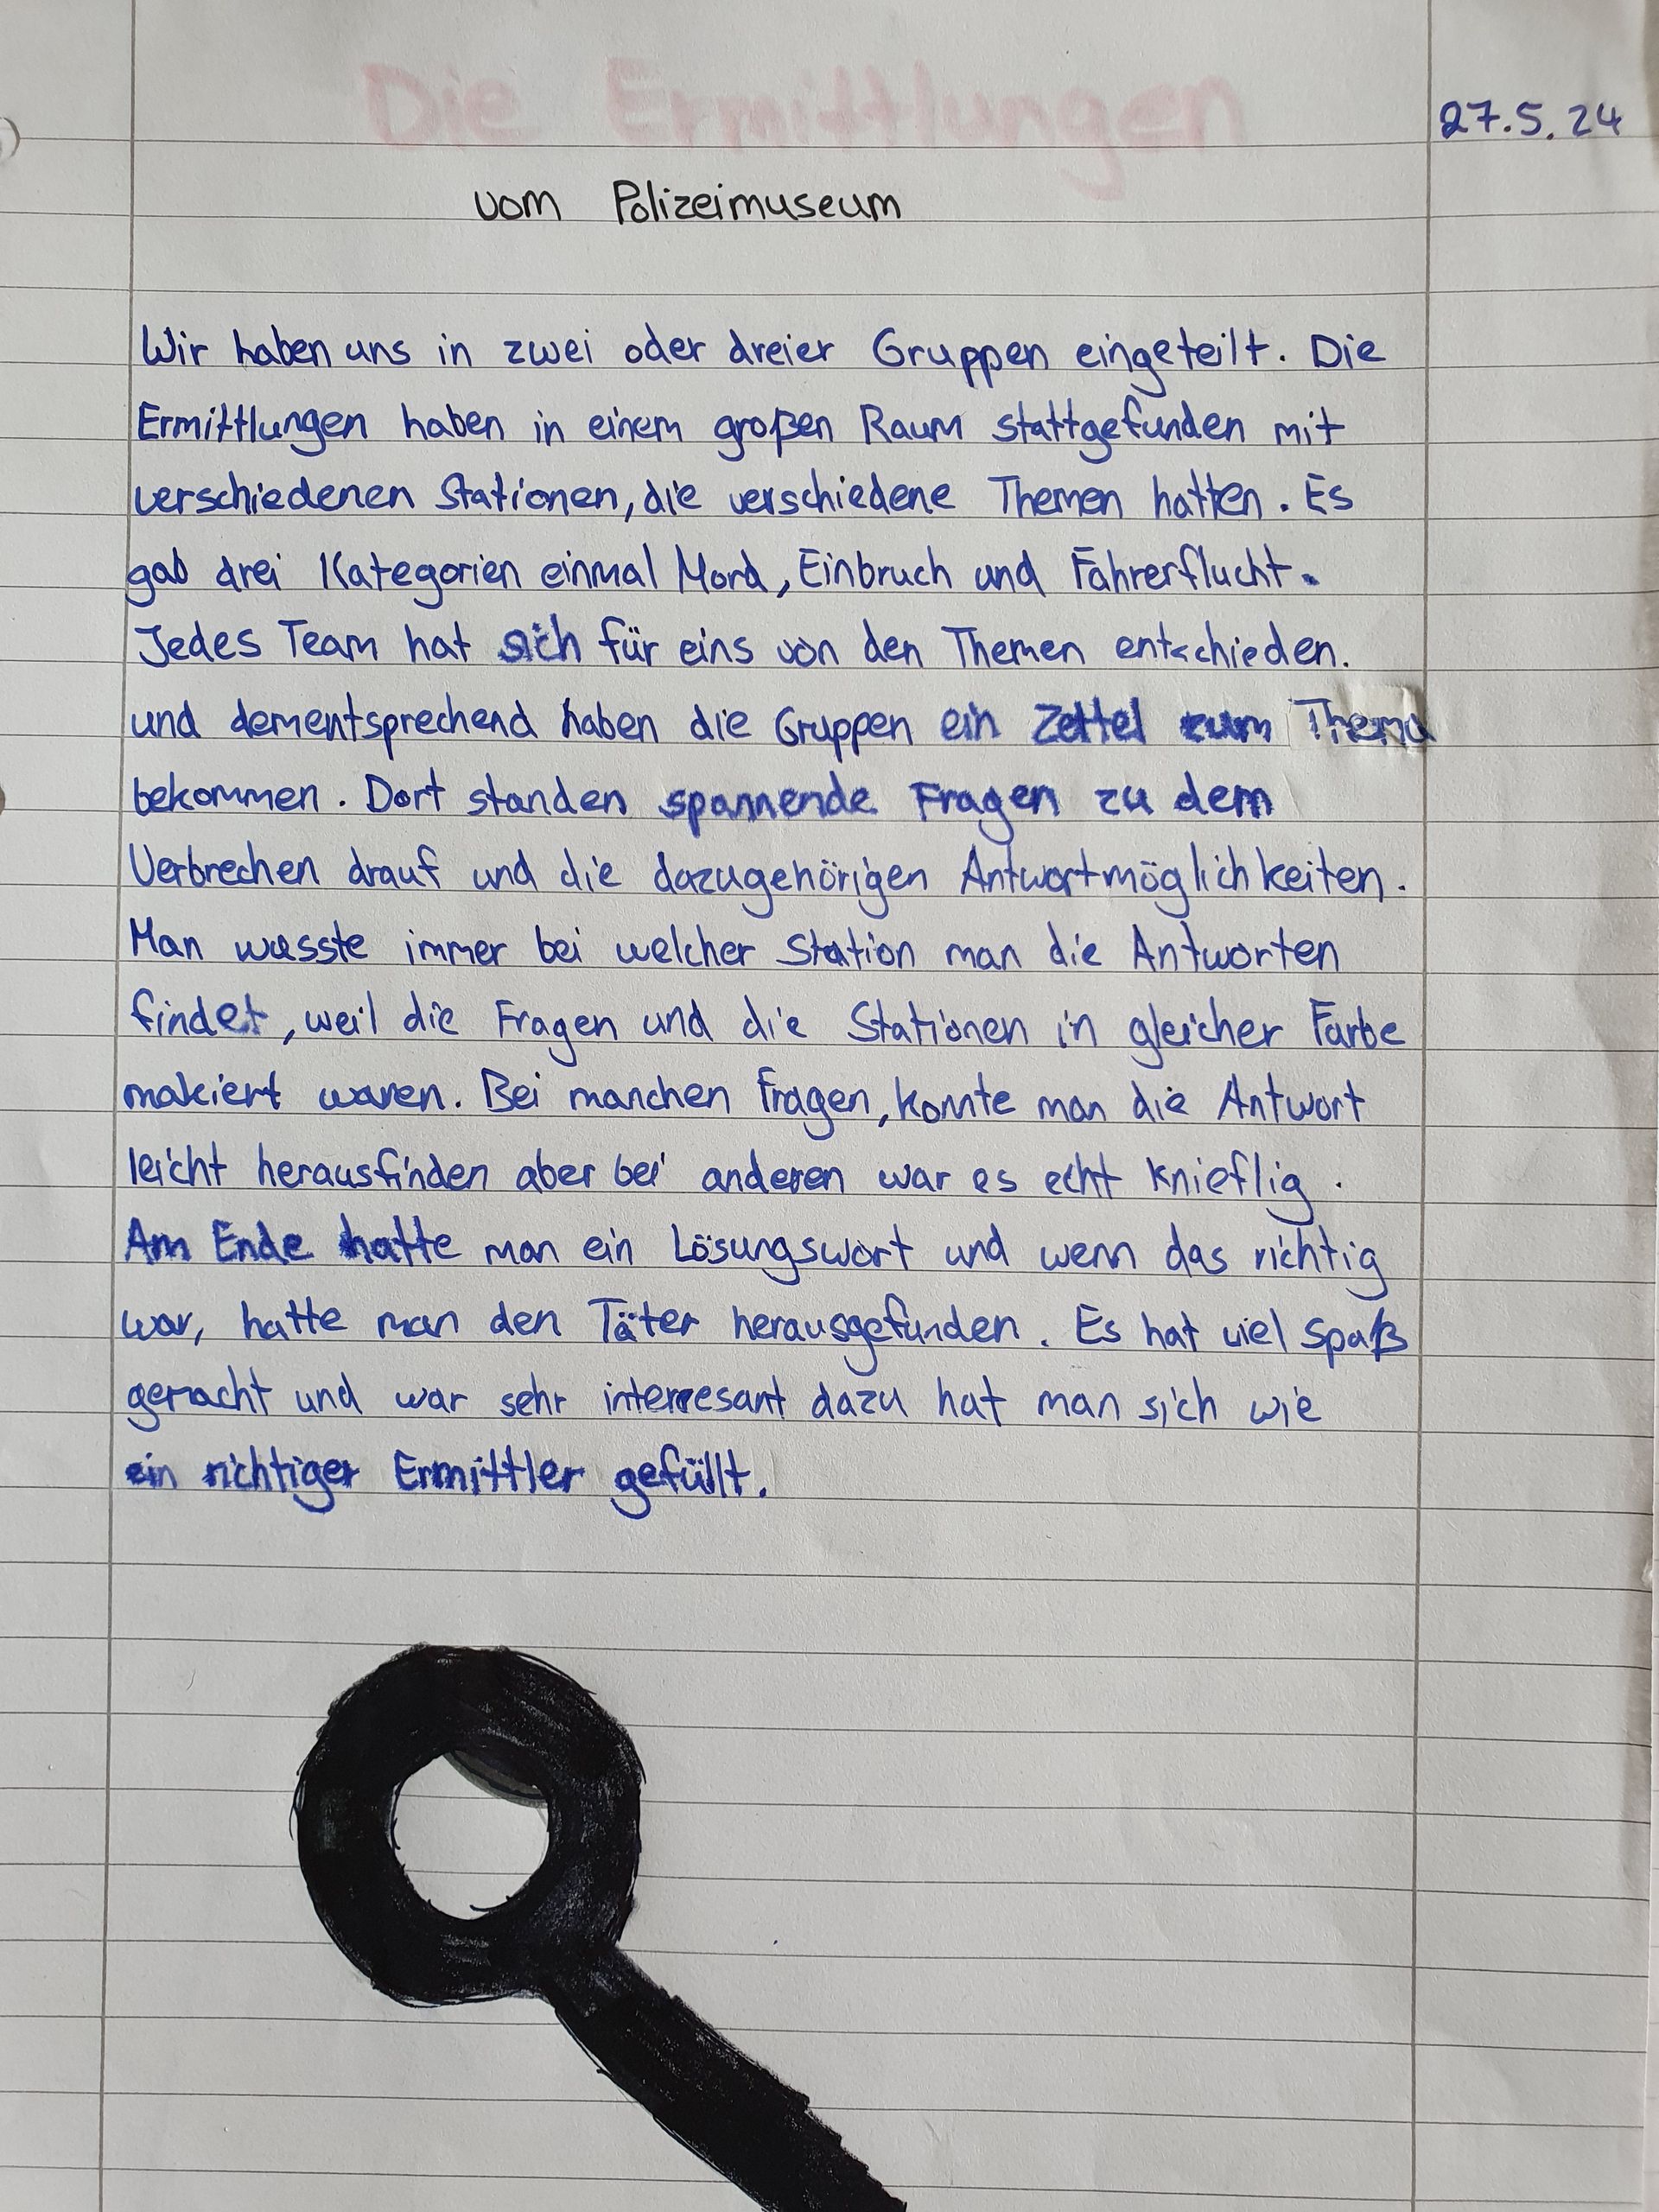 Die Ermittlungen
27.5.24
vom Polizeimuseum
Wir haben uns in zwei oder dreier Gruppen eingeteilt. Die
Ermittlungen haben in einem großen Raum stattgefunden mit
verschiedenen Stationen, die verschiedene Themen hatten. Es
gab drei Kategorien einmal Mord, Einbruch und Fahrerflucht.
Jedes Team hat sich für eins von den Themen entschieden.
und dementsprechend haben die Gruppen ein Zettel zum Thema
bekommen. Dort standen spannende Fragen zu dem
Verbrechen drauf und die dazugehörigen Antwortmöglichkeiten.
Man wusste immer bei welcher Station man die Antworten
findet, weil die Fragen und die Stationen in gleicher Farbe
makiert waren. Bei manchen Fragen, konnte man die Antwort
leicht herausfinden aber bei anderen war es echt knieflig.
Am Ende hatte man ein Lösungswort und wenn das richtig
war, hatte man den Täter herausgefunden. Es hat viel spaß
gemacht und war sehr interresant dazu hat man sich wie
ein richtiger Ermittler gefüllt.